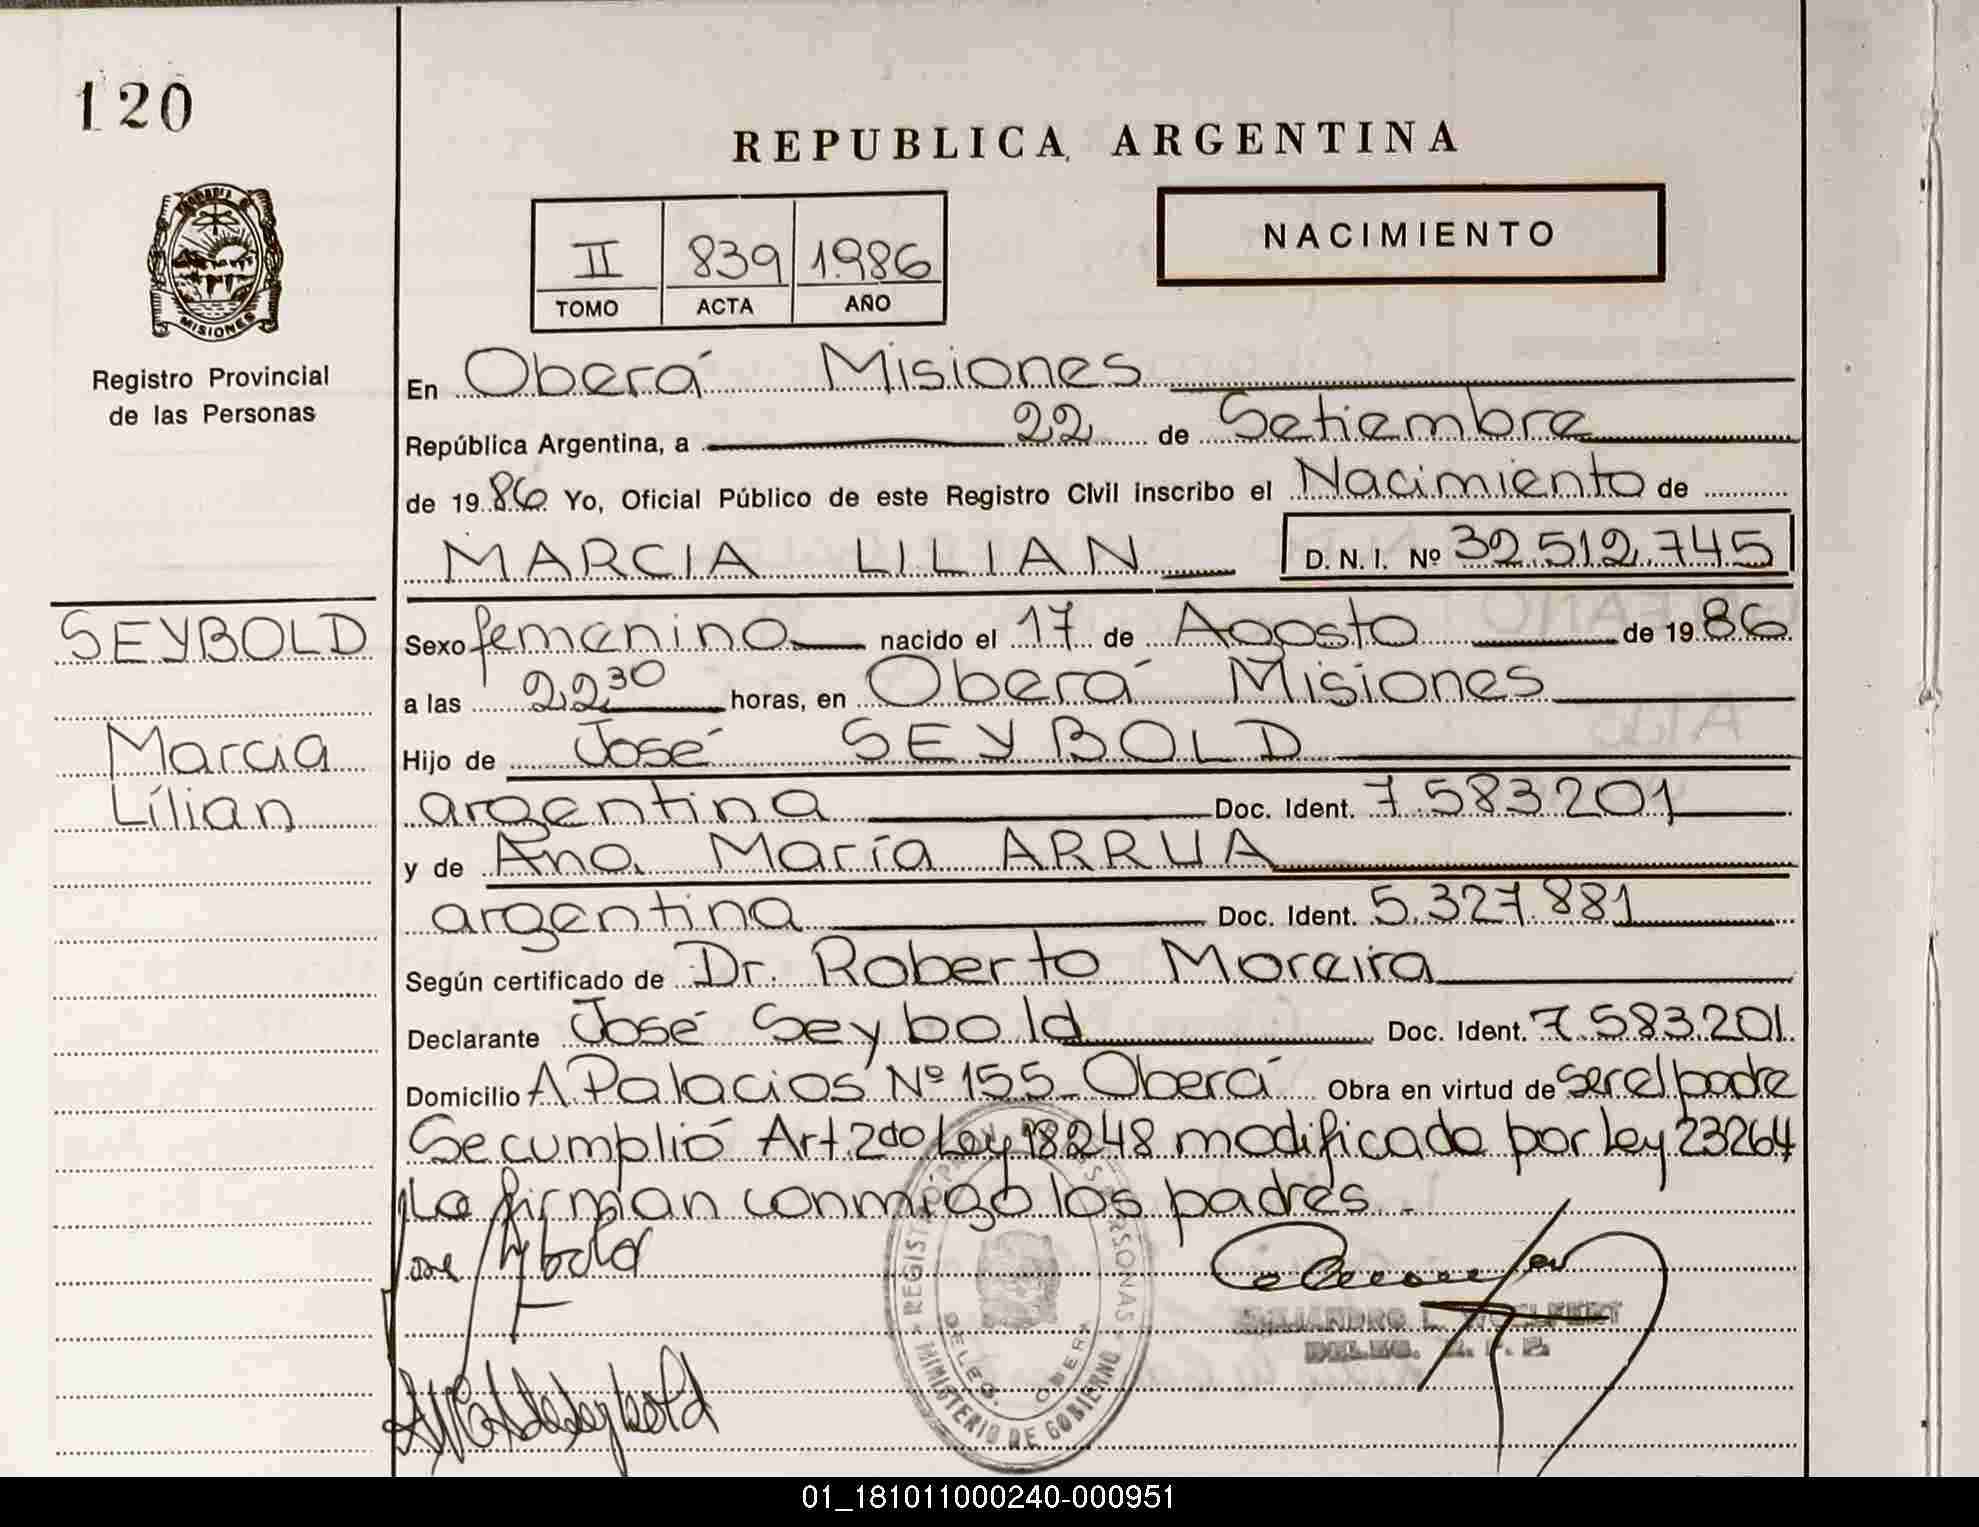 120
REPUBLICA ARGENTINA
II 839 1986
TOMO ACTA AÑO
NACIMIENTO
MISIONES
Registro Provincial
de las Personas
En Oberá Misiones
República Argentina, a 22 de Setiembre
de 19 86 Yo, Oficial Público de este Registro Civil inscribo el Nacimiento de
MARCIA LILIAN D. N. I. Nº 32.512.745
SEYBOLD
Marcia
Lílian
Sexo femenino nacido el 17 de Agosto de 19 86
a las 22 30 horas, en Oberá Misiones
Hijo de José SEYBOLD
argentina Doc. Ident. 7.583.201
y de Ana María ARRUA
argentina Doc. Ident. 5.327.881
Según certificado de Dr. Roberto Moreira
Declarante José Seybold Doc. Ident. 7.583.201.
Domicilio A Palacios Nº 155 Oberá Obra en virtud de ser el padre
Se cumplió Art. 2do Ley 18248 modificado por Ley 23264
La firman conmigo los padres.-
José Seybold
REGISTRO PERSONAS
MINISTERIO DE GOBIERNO
DELEG. OBERA
ALEJANDRO L.
DELEG. R. P. P.
01_181011000240-000951